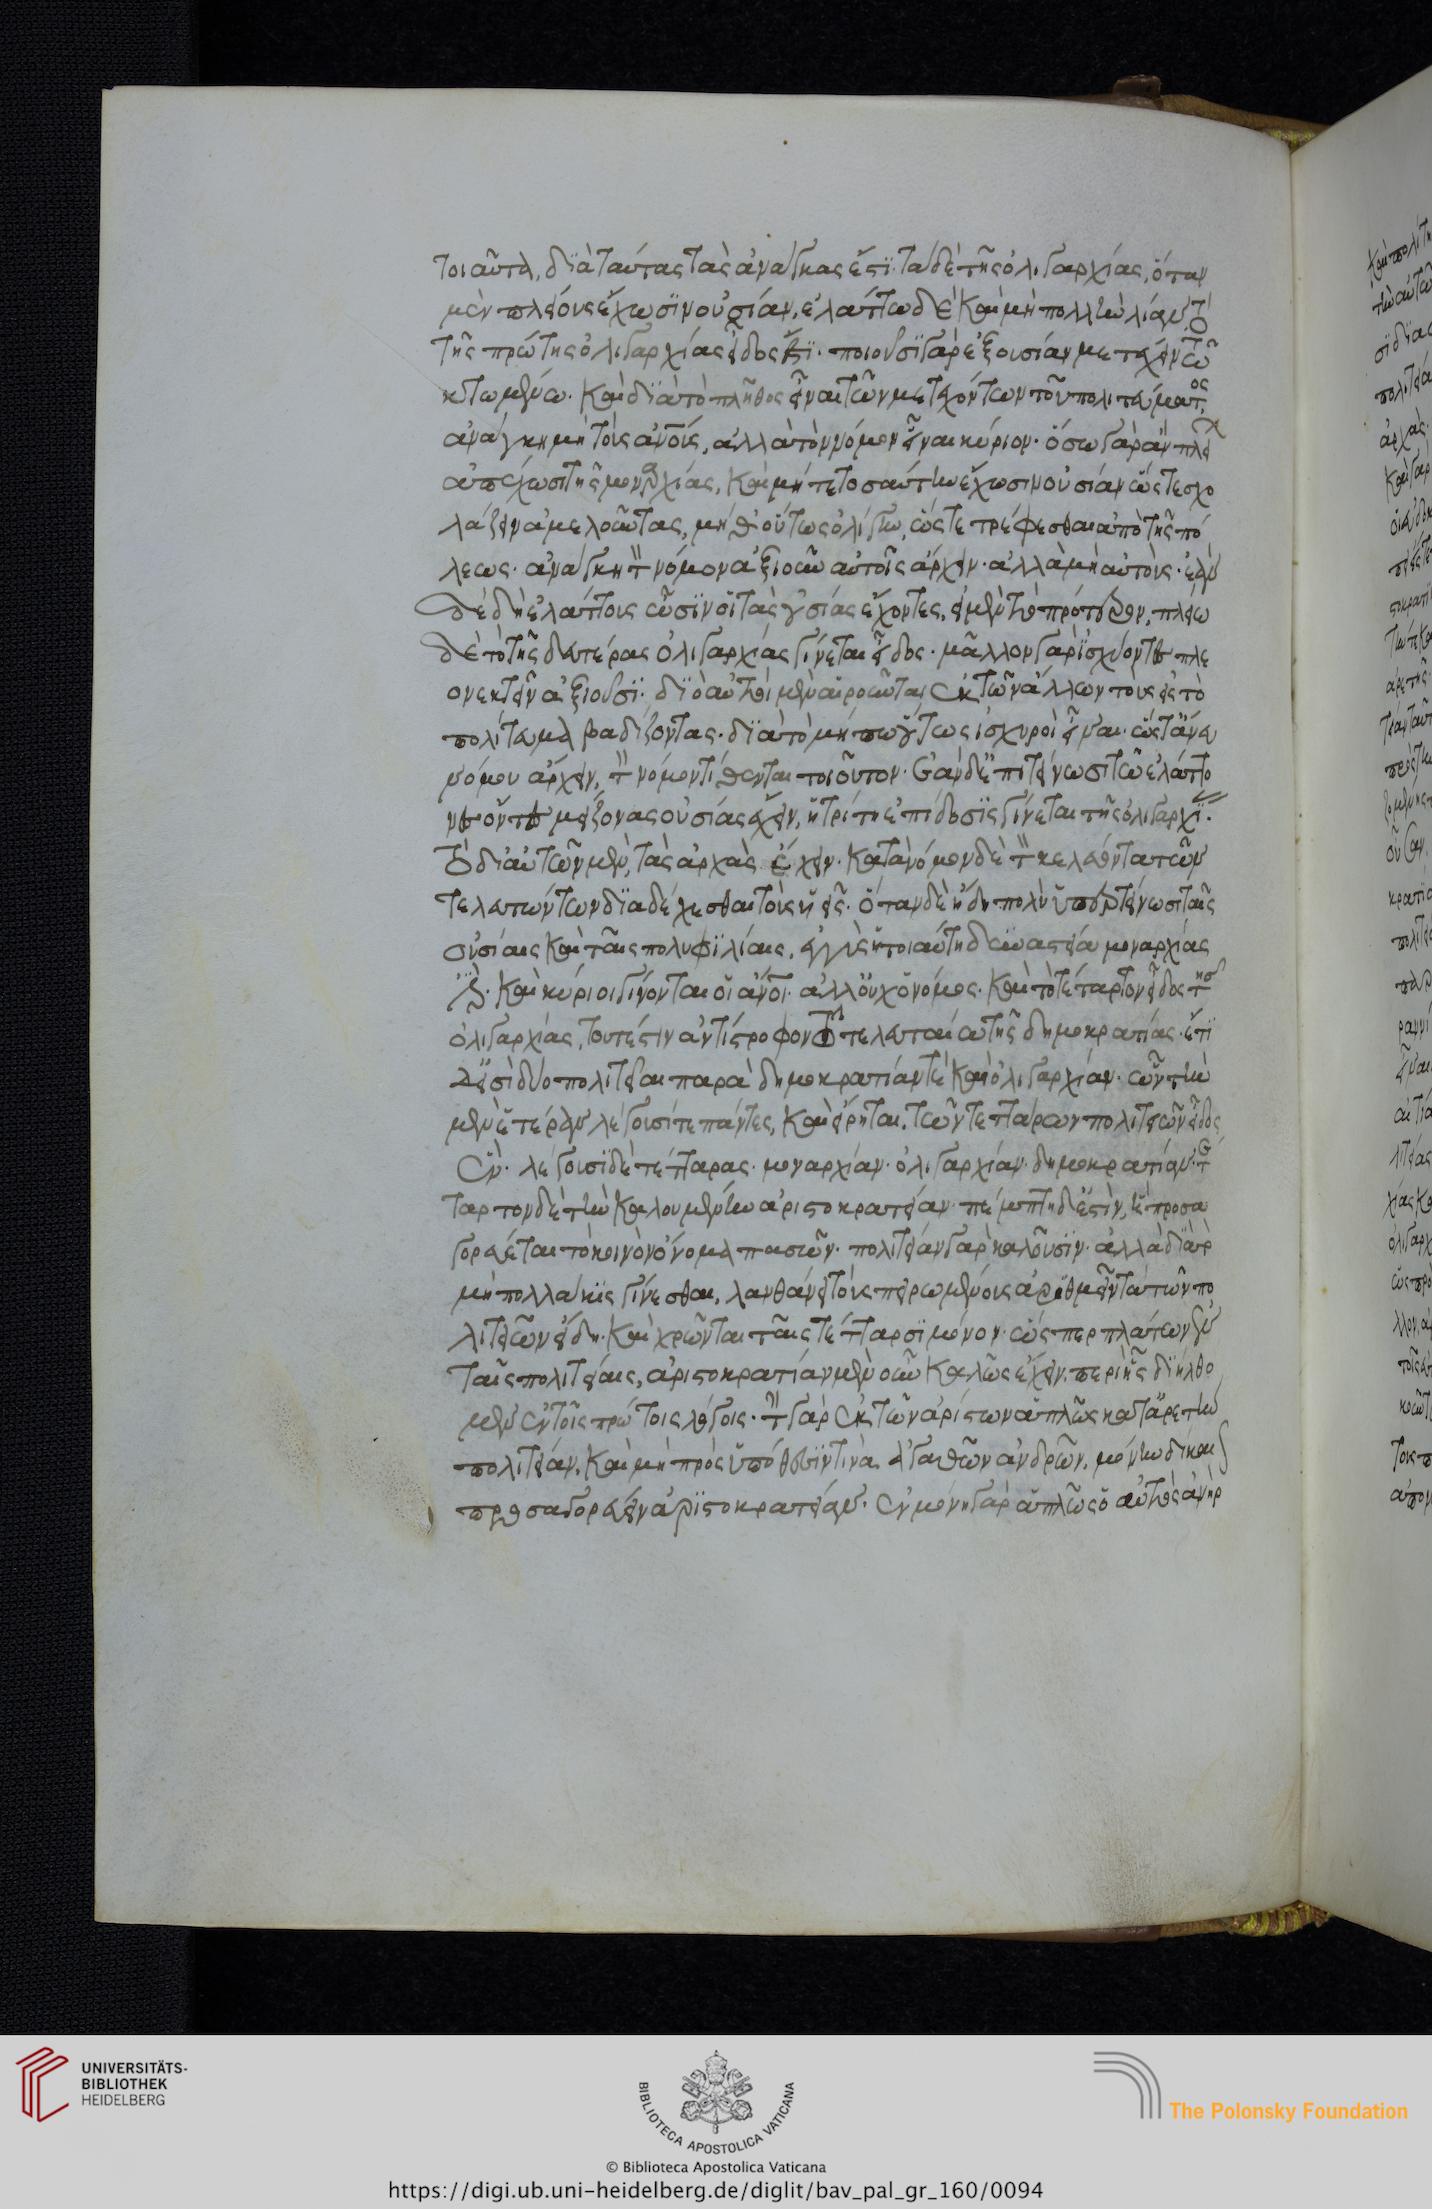 τοιαῦτα, διὰ ταύτας τὰς ἀνάγκας ἐστί· τάδε τῆς ὀλιγαρχίας, ὅταν
μὲν πλείους ἔχωσιν οὐσίαν, ἐλάττω δὲ καὶ μὴ πολλὴν λίαν, τὸ
τῆς πρώτης ὀλιγαρχίας εἶδος ἐστί· ποιοῦσι γὰρ ἐξουσίαν μετέχειν τῶ
κτωμένω· καὶ διὰ τὸ πλῆθος εἶναι τῶν μετεχόντων τοῦ πολιτεύματος,
ἀνάγκη μὴ τοὺς ἀνούς, ἀλλὰ τὸν νόμον εἶναι κύριον· ὅσω γὰρ ἂν πλεῖ
ἀπέχωσι τῆς μοναρχίας, καὶ μήτε τοσαύτην ἔχωσιν οὐσίαν ὥστε σχο
λάζειν ἀμελοῦντας, μήθ' οὕτως ὀλίγην, ὥστε τρέφεσθαι ἀπὸ τῆς πό
λεως· ἀνάγκη τὸν νόμον ἀξιοῦν αὐτοῖς ἄρχειν· ἀλλὰ μὴ αὐτούς· ἐὰν
δὲ δὴ ἐλάττους ὦσιν οἱ τὰς οὐσίας ἔχοντες, εἰ μὲν τὸ πρότερον, πλείω
δὲ τὸ τῆς δευτέρας ὀλιγαρχίας γίνεται εἶδος· μᾶλλον γὰρ ἰσχύοντες πλε
ονεκτεῖν ἀξιοῦσι· διὸ αὐτοὶ μὲν αἱροῦνται ἐκ τῶν ἄλλων τοὺς εἰς τὸ
πολίτευμα βαδίζοντας· διὰ τὸ μήπω οὕτως ἰσχυροὶ εἶναι· ὥστ' ἄνευ
νόμου ἄρχειν, τὸν νόμον τίθενται τοιοῦτον· ἐὰν δ' ἐπιτείνωσι τῶ ἐλάττο
νες ὄντες μείζονας οὐσίας ἔχειν, ἡ τρίτη ἐπίδοσις γίνεται τῆς ὀλιγαρχί·
τὸ δι' αὐτῶν μὲν, τὰς ἀρχὰς ἔχειν· κατὰ νόμον δὲ τὸν κελεύοντα τῶν
τελευτώντων διαδέχεσθαι τοὺς υἱεῖς· ὅταν δὲ ἤδη πολὺ ὑπερτείνωσι ταῖς
οὐσίαις καὶ ταῖς πολυφιλίαις, ἐγγὺς ἡ τοιαύτη δυναστεία μοναρχίας
ἐστί· καὶ κύριοι γίνονται οἱ ἄνοι· ἀλλ' οὐχ ὁ νόμος· καὶ τὸ τέταρτον εἶδος τῆς
ὀλιγαρχίας, τουτέστιν ἀντίστροφον τῶ τελευταίω τῆς δημοκρατίας· ἔτι
δ' εἰσὶ δύο πολιτεῖαι παρὰ δημοκρατίαν τὲ καὶ ὀλιγαρχίαν· ὧν τὴν
μὲν ἑτέραν λέγουσί τε πάντες, καὶ εἴρηται, τῶν τεττάρων πολιτειῶν εἶδος
ἕν· λέγουσι δὲ τέτταρας· μοναρχίαν· ὀλιγαρχίαν· δημοκρατίαν· τέ
ταρτον δὲ τὴν καλουμένην ἀριστοκρατείαν· πέμπτη δ' ἐστὶν, ἣ προσα
γορεύεται τὸ κοινὸν ὄνομα πασῶν· πολιτείαν γὰρ καλοῦσιν· ἀλλὰ διὰ τὸ
μὴ πολλάκις γίνεσθαι, λανθάνει τοὺς πειρωμένους ἀριθμεῖν τὰ τῶν πο
λιτειῶν εἴδη· καὶ χρῶνται ταῖς τέτταρσι μόνον· ὥσπερ πλάτων ἐν
ταῖς πολιτείαις, ἀριστοκρατίαν μὲν οὖν καλῶς ἔχειν, περὶ ἧς διήλθο
μεν ἐν τοῖς πρώτοις λόγοις· τὴν γὰρ ἐκ τῶν ἀρίστων ἁπλῶς κατ' ἀρετὴν
πολιτείαν, καὶ μὴ πρὸς ὑπόθεσιν τινὰ ἀγαθῶν ἀνδρῶν, μόνην δίκαι
προσαγορεύειν ἀριστοκρατείαν· ἐν μόνη γὰρ ἁπλῶς ὁ αὐτὸς ἀνὴρ
UNIVERSITÄTS-
BIBLIOTHEK
HEIDELBERG
BIBLIOTECA APOSTOLICA VATICANA
The Polonsky Foundation
© Biblioteca Apostolica Vaticana
https://digi.ub.uni-heidelberg.de/diglit/bav_pal_gr_160/0094